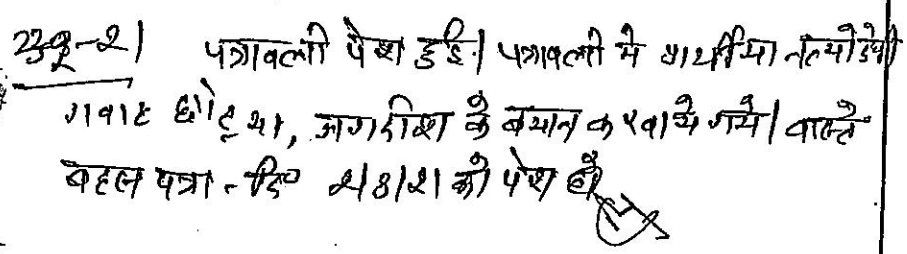 पत्रावली पेश हुई। पत्रावली मे प्रार्थीया
गवाह छोटू था, जगदीश के बयान करवाये गये। वास्ते
बहस पत्रा. दि० 2/8/21 को पेश हो